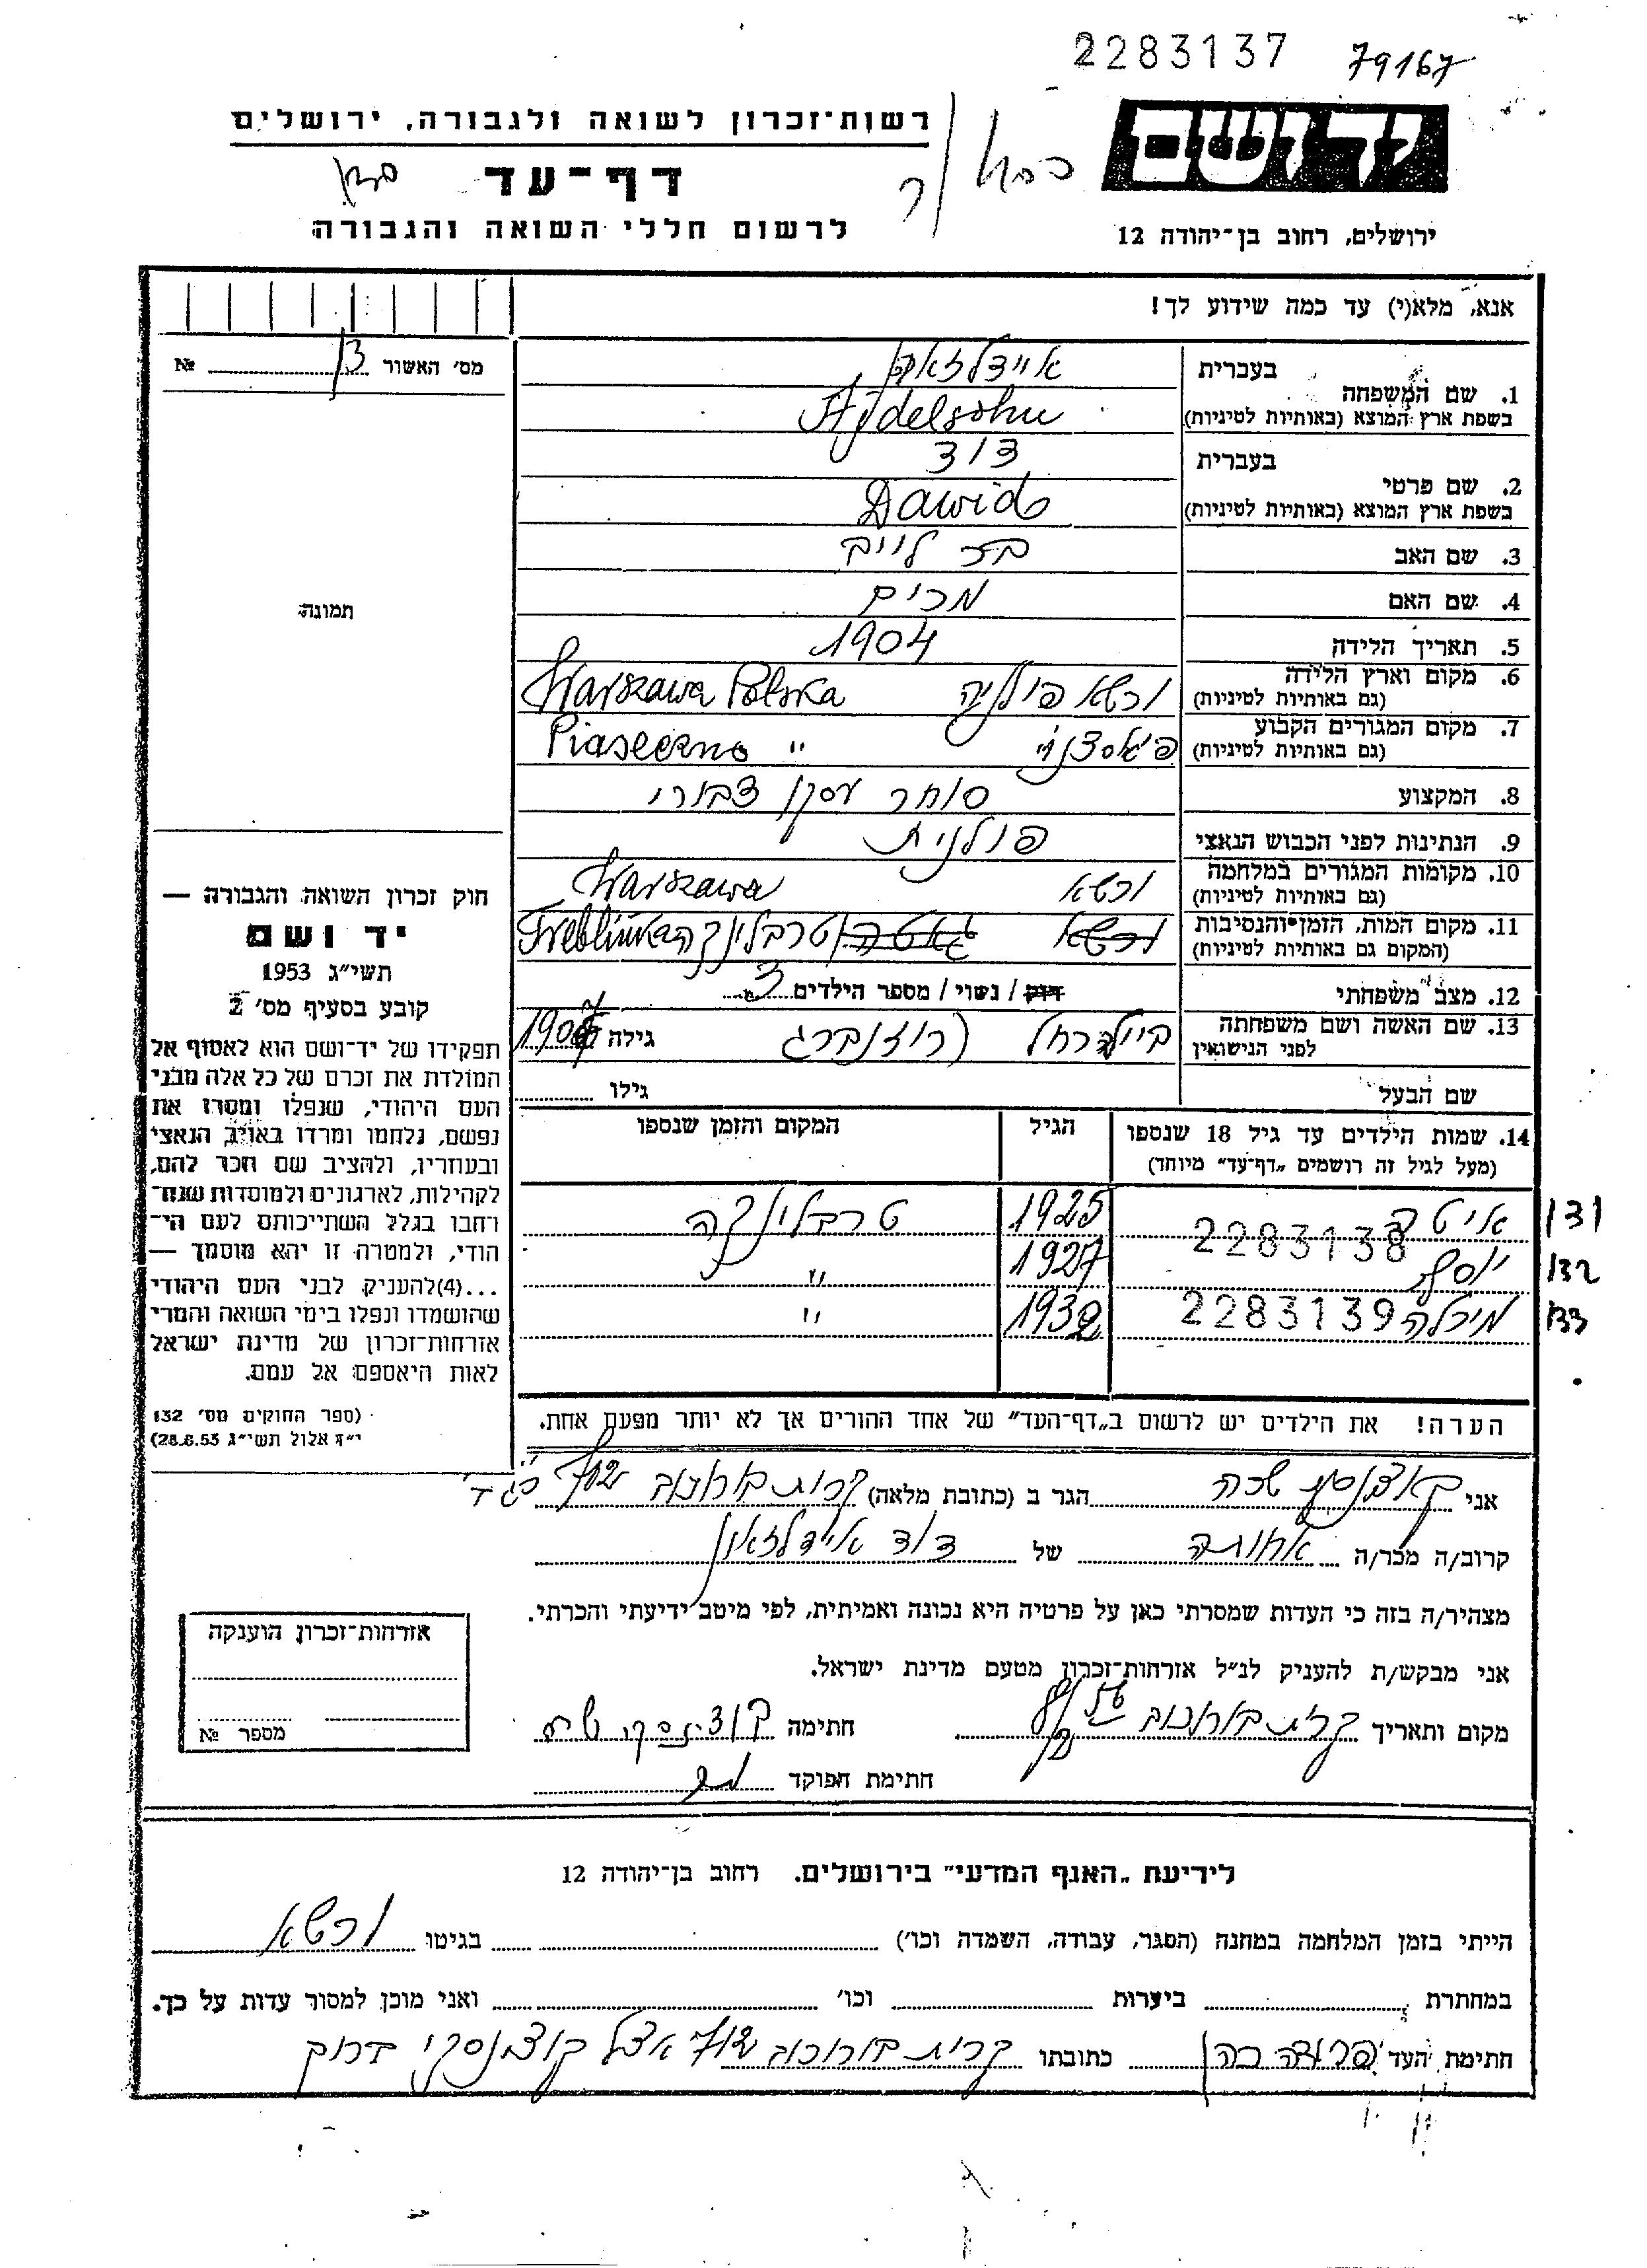 2283137 79167
יד ושם
רשות־זכרון לשואה ולגבורה, ירושלים
דף־עד
לרשום חללי השואה והגבורה
ירושלים, רחוב בן־יהודה 12
אנא, מלא(י) עד כמה שידוע לך!
מס׳ האשור 13 №
תמונה
1. שם המשפחה בעברית
בשפת ארץ המוצא (באותיות לטיניות) Ajdelsohn
2. שם פרטי בעברית דוד
בשפת ארץ המוצא (באותיות לטיניות) Dawid
3. שם האב
4. שם האם מרים
5. תאריך הלידה 1904
6. מקום וארץ הלידה ורשא פולניה Warszawa Polska
(גם באותיות לטיניות)
7. מקום המגורים הקבוע Piaseczno "
(גם באותיות לטיניות)
8. המקצוע סוחר עסקן צבורי
9. הנתינות לפני הכבוש הנאצי פולנית
10. מקומות המגורים במלחמה ורשא Warszawa
(גם באותיות לטיניות)
11. מקום המות, הזמן והנסיבות ורשא גאטה טרבלינקה Treblinka
(המקום גם באותיות לטיניות)
12. מצב משפחתי רוק / נשוי / מספר הילדים 3
13. שם האשה ושם משפחתה ביילה רחל (רוזנברג גילה
לפני הנישואין
שם הבעל גילו
14. שמות הילדים עד גיל 18 שנספו הגיל המקום והזמן שנספו
(מעל לגיל זה רושמים „דף־עד״ מיוחד)
איטה 1925 טרבלינקה 131
2283138
יוסף 1927 " 132
מיכלה 2283139 1932 " 133
הערה! את הילדים יש לרשום ב„דף־העד״ של אחד ההורים אך לא יותר מפעם אחת.
חוק זכרון השואה והגבורה —
יד ושם
תשי״ג 1953
קובע בסעיף מס׳ 2
תפקידו של יד־ושם הוא לאסוף אל
המולדת את זכרם של כל אלה מבני
העם היהודי, שנפלו ומסרו את
נפשם, נלחמו ומרדו באויב הנאצי
ובעוזריו, ולהציב שם וזכר להם,
לקהילות, לארגונים ולמוסדות שנח־
רחבו בגלל השתייכותם לעם הי־
הודי, ולמטרה זו יהא מוסמך —
...(4) להעניק לבני העם היהודי
שהושמדו ונפלו בימי השואה והמרי
אזרחות־זכרון של מדינת ישראל
לאות היאספם אל עמם.
(ספר החוקים מס׳ 132
י״ז אלול תשי״ג 28.8.53)
אני הגר ב (כתובת מלאה)
קרוב/ה מכר/ה אחותה של דוד איידלזאון
מצהיר/ה בזה כי העדות שמסרתי כאן על פרטיה היא נכונה ואמיתית, לפי מיטב ידיעתי והכרתי.
אני מבקש/ת להעניק לנ״ל אזרחות־זכרון מטעם מדינת ישראל.
מקום ותאריך חתימה
חתימת הפוקד
אזרחות־זכרון הוענקה
מספר №
לידיעת „האגף המדעי״ בירושלים. רחוב בן־יהודה 12
הייתי בזמן המלחמה במחנה (הסגר, עבודה, השמדה וכו׳) בגיטו ורשא
במחתרת ביערות וכו׳ ואני מוכן למסור עדות על כך.
חתימת העד כתובתו אצל